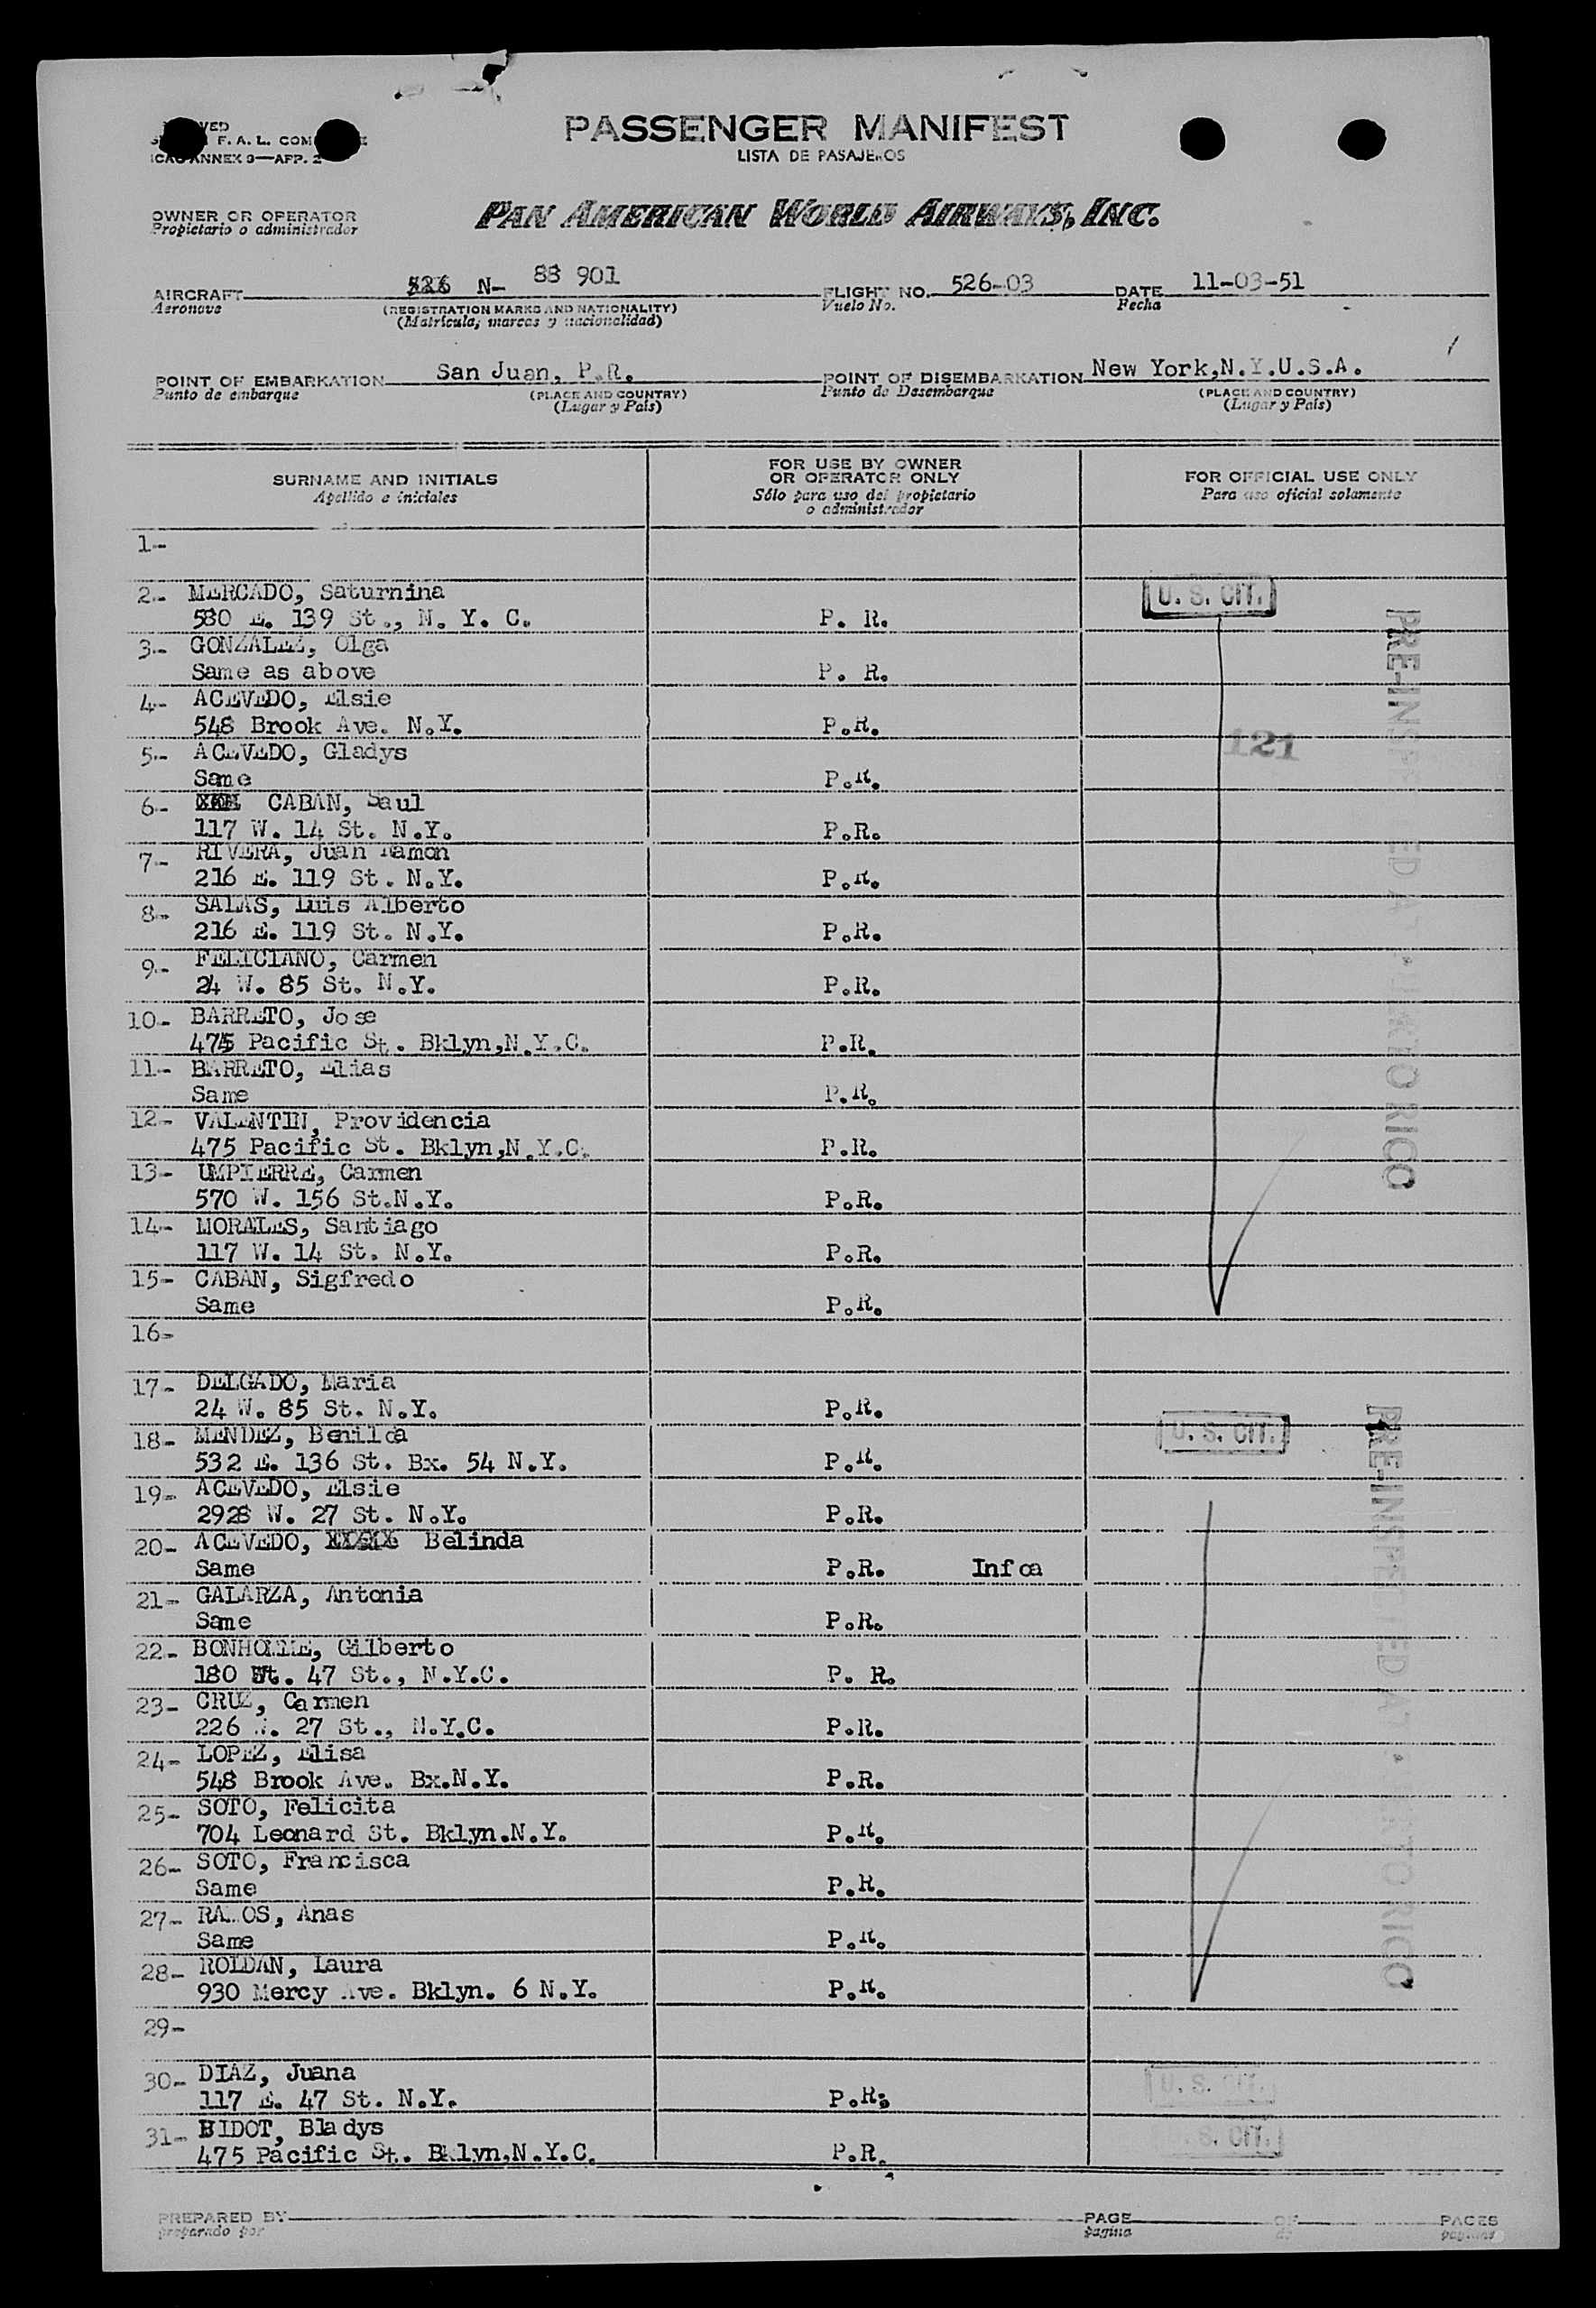 F. A. L. COM
ANNEX 9—APP. 2
PASSENGER MANIFEST
LISTA DE PASAJEROS
OWNER OR OPERATOR
Propietario o administrador
PAN AMERICAN WORLD AIRWAYS, INC.
AIRCRAFT N- 88 901 FLIGHT NO. 526-03 DATE 11-03-51
Aeronave (REGISTRATION MARKS AND NATIONALITY) Vuelo No. Fecha
(Matrícula, marcas y nacionalidad)
POINT OF EMBARKATION San Juan, P.R. POINT OF DISEMBARKATION New York,N.Y.U.S.A.
Punto de embarque (PLACE AND COUNTRY) Punto de Desembarque (PLACE AND COUNTRY)
(Lugar y País) (Lugar y País)
SURNAME AND INITIALS FOR USE BY OWNER OR OPERATOR ONLY FOR OFFICIAL USE ONLY
Apellido e iniciales Sólo para uso del propietario o administrador Para uso oficial solamente
1-
2- MERCADO, Saturnina U. S. CIT.
580 E. 139 St., N. Y. C. P. R.
3- GONZALEZ, Olga
Same as above P. R.
4- ACEVEDO, Elsie
548 Brook Ave. N.Y. P.R.
5- ACEVEDO, Gladys 121
Same P.R.
6- CABAN, Saul
117 W. 14 St. N.Y. P.R.
7- RIVERA, Juan Ramon
216 E. 119 St. N.Y. P.R.
8- SALAS, Luis Alberto
216 E. 119 St. N.Y. P.R.
9- FELICIANO, Carmen
24 W. 85 St. N.Y. P.R.
10- BARRETO, Jose
475 Pacific St. Bklyn,N.Y.C. P.R.
11- BARRETO, Elias
Same P.R.
12- VALENTIN, Providencia
475 Pacific St. Bklyn,N.Y.C. P.R.
13- UMPIERRE, Carmen
570 W. 156 St.N.Y. P.R.
14- MORALES, Santiago
117 W. 14 St. N.Y. P.R.
15- CABAN, Sigfredo
Same P.R.
PRE-INSPECTED AT PUERTO RICO
16-
17- DELGADO, Maria
24 W. 85 St. N.Y. P.R.
18- MENDEZ, Benilda U. S. CIT.
532 E. 136 St. Bx. 54 N.Y. P.R.
19- ACEVEDO, Elsie
2928 W. 27 St. N.Y. P.R.
20- ACEVEDO, Belinda
Same P.R. Infoa
21- GALARZA, Antonia
Same P.R.
22- BONHOMME, Gilberto
180 Wt. 47 St., N.Y.C. P. R.
23- CRUZ, Carmen
226 W. 27 St., N.Y.C. P.R.
24- LOPEZ, Elisa
548 Brook Ave. Bx.N.Y. P.R.
25- SOTO, Felicita
704 Leonard St. Bklyn.N.Y. P.R.
26- SOTO, Francisca
Same P.R.
27- RAMOS, Anas
Same P.R.
28- ROLDAN, Laura
930 Mercy Ave. Bklyn. 6 N.Y. P.R.
PRE-INSPECTED AT PUERTO RICO
29-
30- DIAZ, Juana U. S. CIT.
117 E. 47 St. N.Y. P.R.
31- BIDOT, Bladys U. S. CIT.
475 Pacific St. Bklyn,N.Y.C. P.R.
PREPARED BY PAGE OF PAGES
preparado por página de páginas